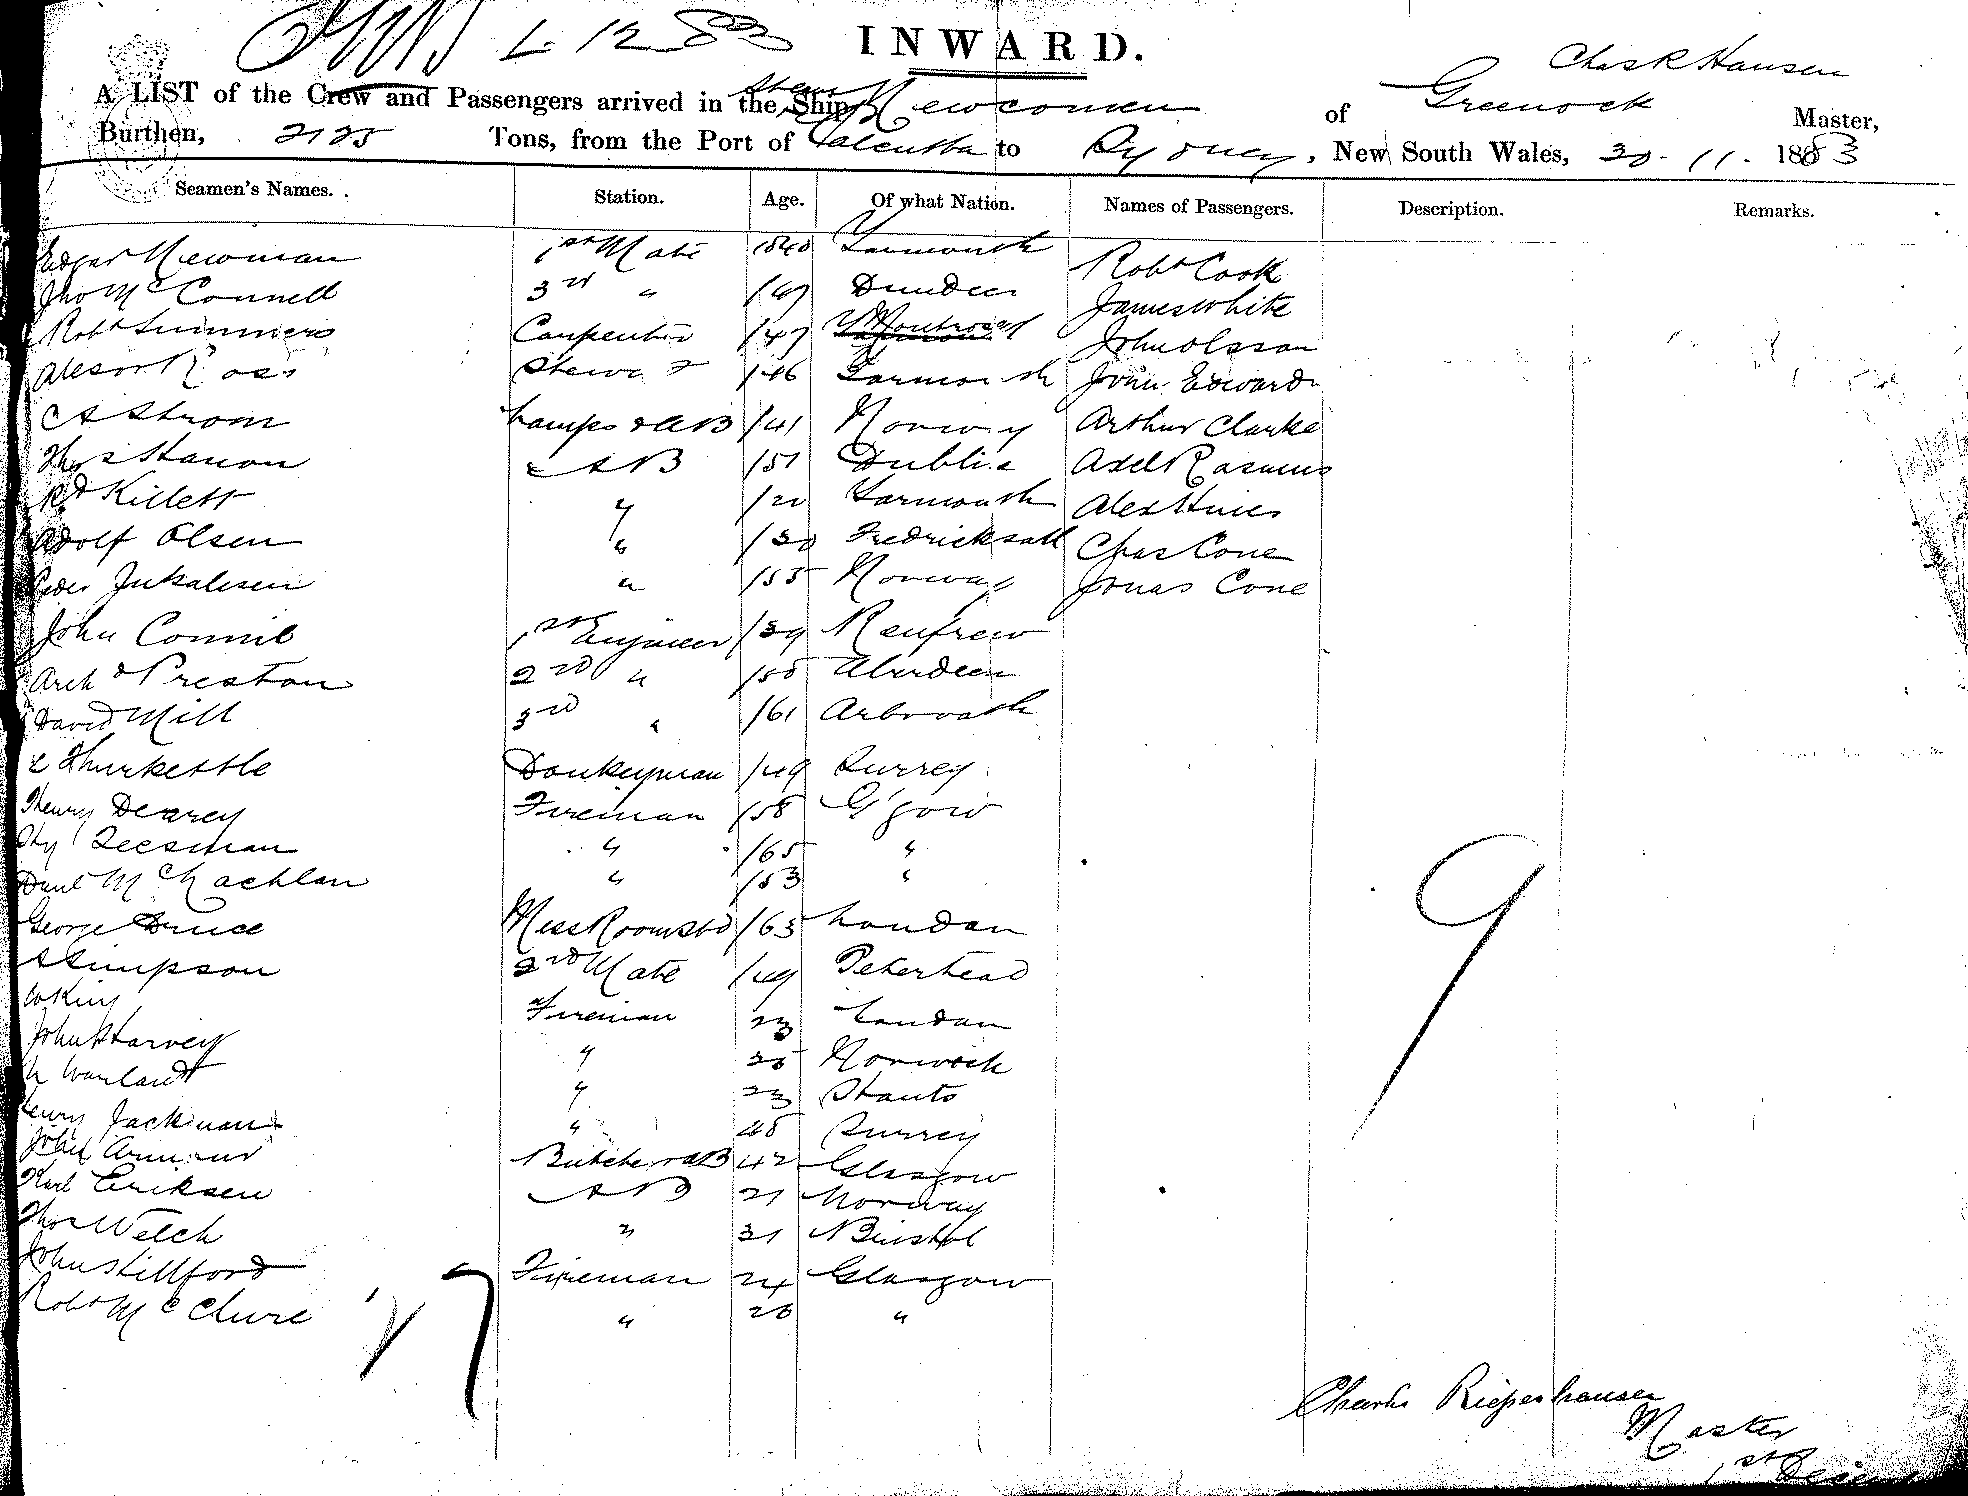 L. 12 83
INWARD.
Chas R Hansen
A LIST of the Crew and Passengers arrived in the Ship Newcomen of Greenock Master,
Burthen, 2125 Tons, from the Port of Calcutta to Sydney, New South Wales, 30 - 11 - 1883
Seamen's Names. Station. Age. Of what Nation. Names of Passengers. Description. Remarks.
Edgar Newman 1st Mate 1840 Yarmouth Robt Cook
Jno McConnell 3rd " /49 Dundee James White
Robt Summers Carpenter /47 Montrose John Olsson
Alexr Ross Steward /46 Yarmouth John Edwards
A Strom Lamps & AB /41 Norway Arthur Clarke
Thos Hanon AB /51 Dublin Axel Rasmus
Rd Killett " /20 Yarmouth Alex Hines
Adolf Olsen " /30 Fredricksall Chas Cone
Peder " /55 Norway Jonas Cone
John Connil 1st Engineer /39 Renfrew
Archd Preston 2nd " /58 Aberdeen
David Mill 3rd " /61 Arbroath
Thurkettle Donkeyman /49 Surrey
Henry Dearey Fireman /58 G'gow
Hy Teesman " /65 "
Danl McLachlan " /53 "
George Druce Mess Room Std /63 London
A Simpson 2nd Mate /49 Peterhead
W King Fireman 23 London
John Harvey " 25 Norwich
Warland " 23 Hants
Henry Jackman " 48 Surrey
John Butcher & AB 42 Glasgow
Karl Eriksen AB 21 Norway
Thos Welch " 31 Bristol
John Hillford Fireman 24 Glasgow
Robt McClure " 28 "
9
27
Charles Riepenhausen
Master
1st